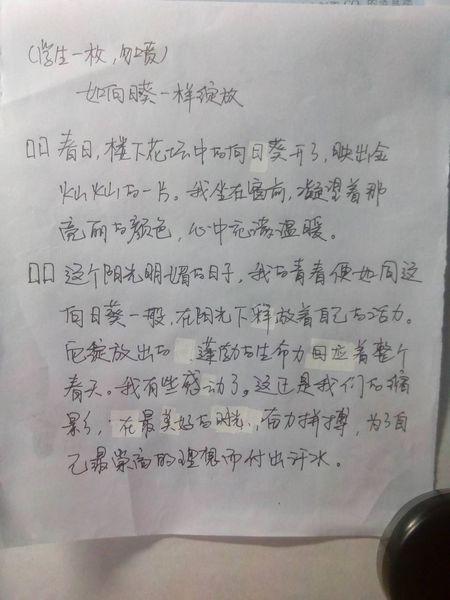 (学生一枚,勿喷)
如向日葵一样绽放
口口 春日,楼下花坛中的向日葵开了,映出金
灿灿的一片。我坐在窗前,凝望着那
亮丽的颜色,心中充满温暖。
口口 这个阳光明媚的日子,我的青春便如同这
向日葵一般,在阳光下释放着自己的活力。
它绽放出的 蓬勃的生命力回应着整个
春天。我有些感动了。这正是我们的缩
影,在最美好的时光,奋力拼搏,为了自
己最崇高的理想而付出汗水。